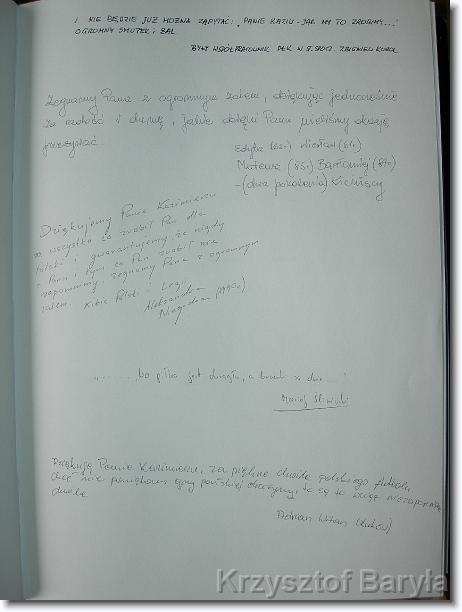 I NIE BĘDZIE JUŻ MOŻNA ZAPYTAĆ: „PANIE KAZIU - JAK MY TO ZROBIMY...”
OGROMNY SMUTEK I ŻAL
BYŁY WSPÓŁPRACOWNIK ZBIGNIEW KOROL
Żegnamy Pana z ogromnym żalem, dziękując jednocześnie
za radość i dumę, jakie dzięki Panu mieliśmy okazję
przeżywać.
Edyta (65r) Wiesław (61r)
Mateusz (85r) Bartłomiej (87r)
- (dwa pokolenia) Kibiców
Dziękujemy Panie Kazimierzu
za wszystko co zrobił Pan dla
Polski i gwarantujemy że nigdy
o Panu i tym co Pan zrobił nie
zapomnimy, żegnamy Pana z ogromnym
żalem. Kibic Polski i Legii
Aleksandra
„........, bo piłka jest okrągła, a bramki są dwie ...”
Maciej Śliwiński
Dziękuję Panie Kazimierzu, za piękne chwile polskiego futbolu,
choć nie pamiętam gry pańskiej drużyny, to są to wciąż niezapomniane
chwile
Adrian
Krzysztof Baryła